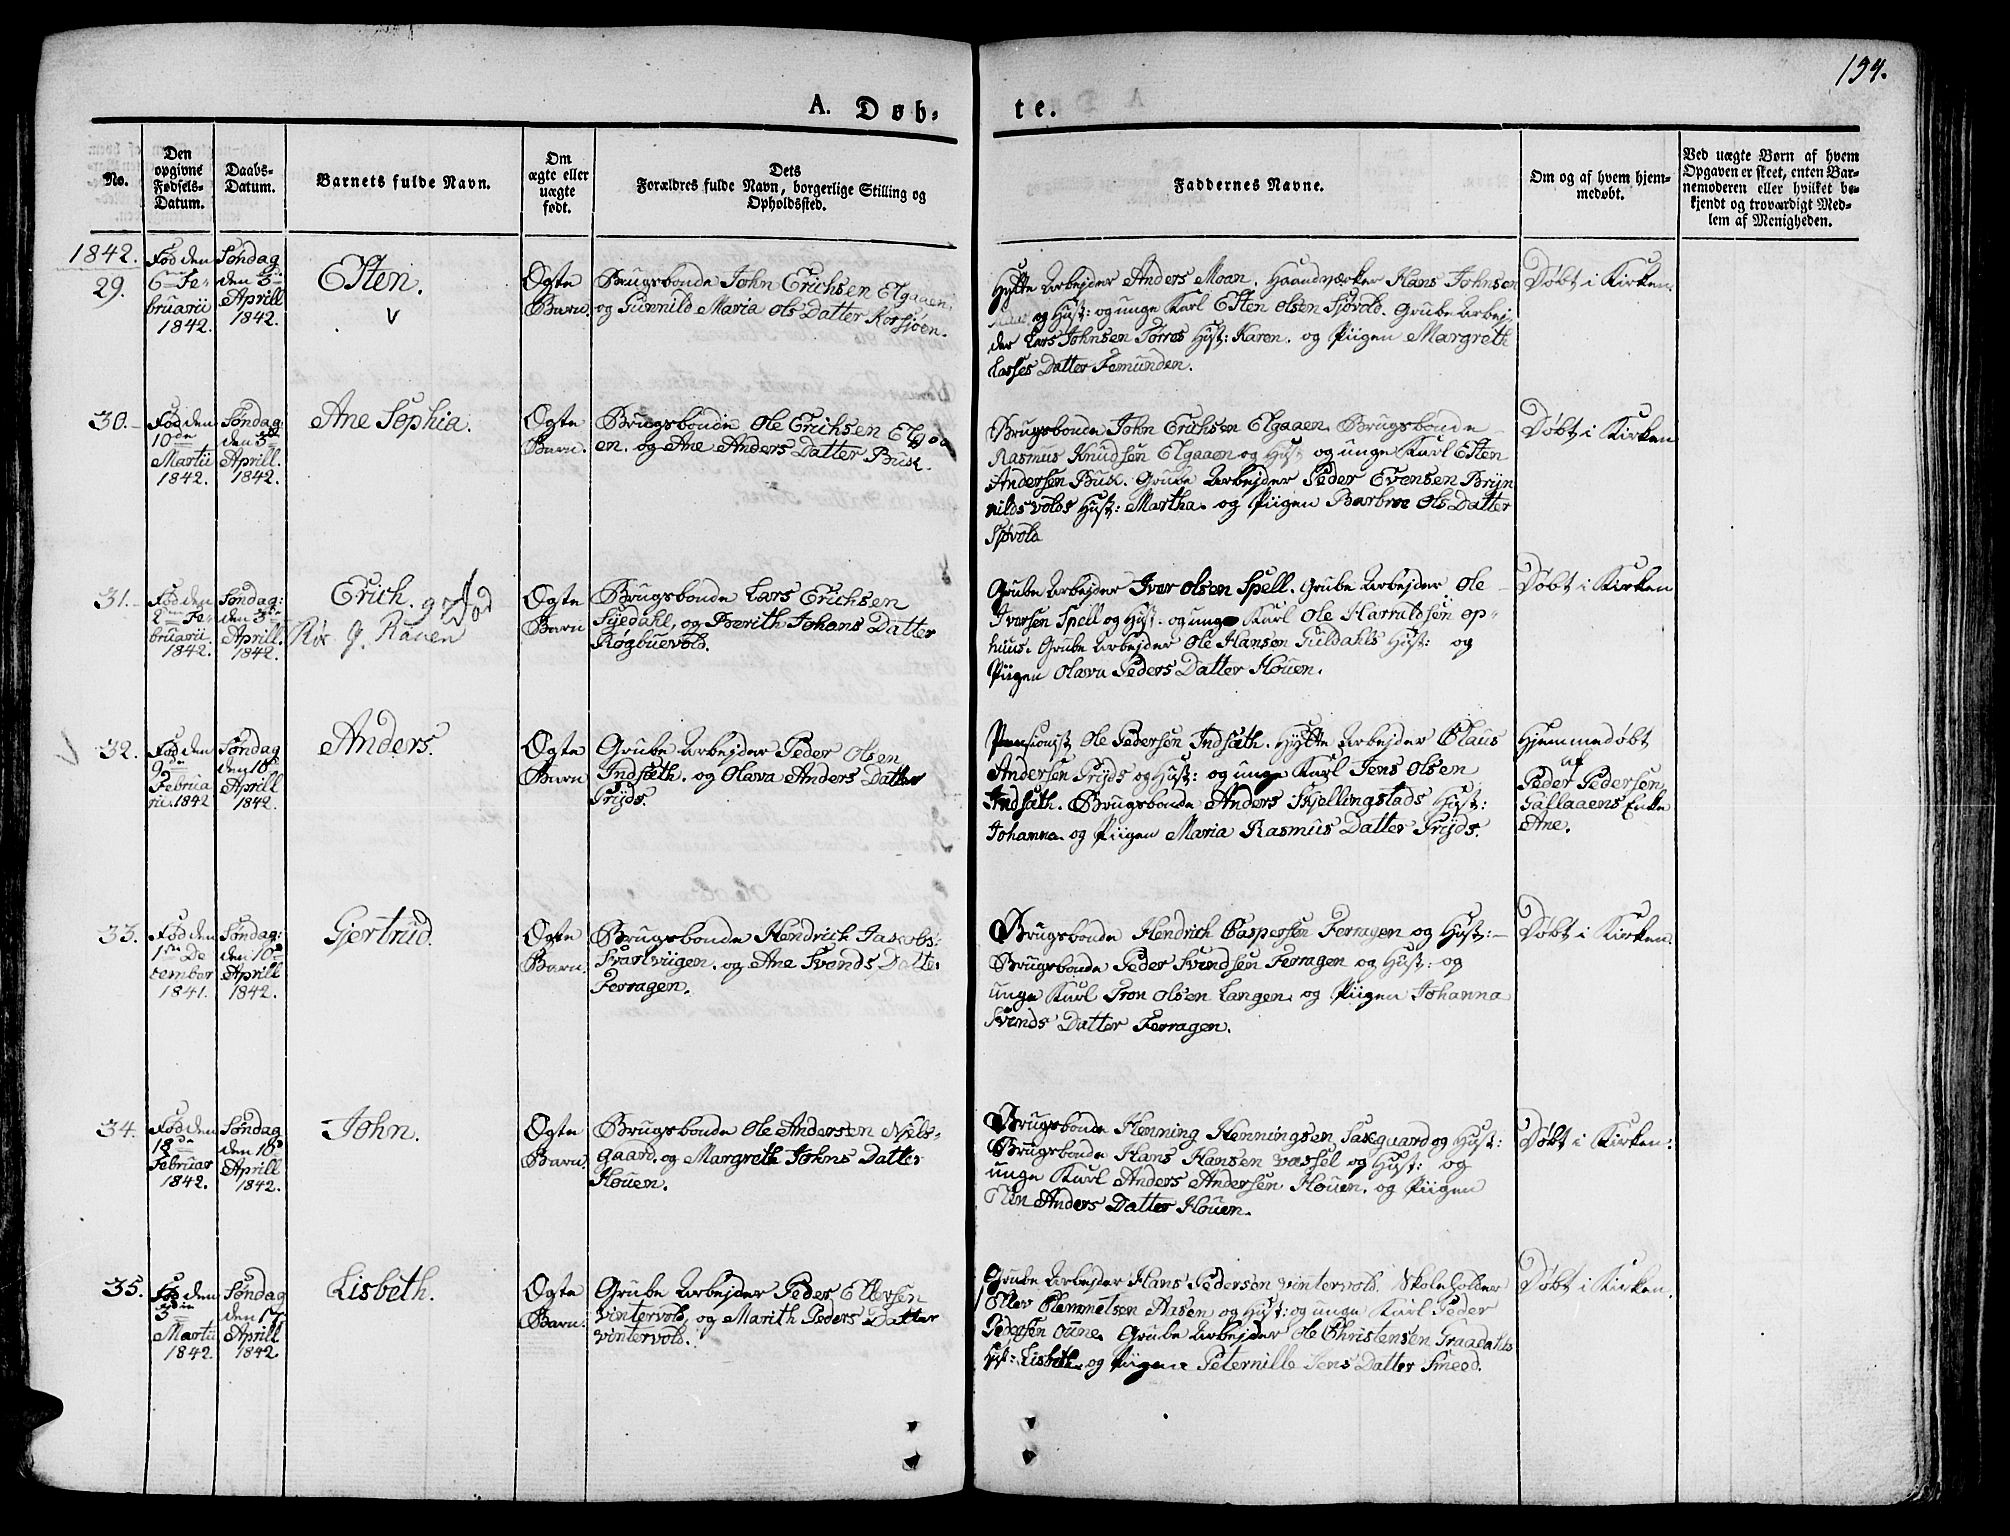 194.
A. Døb-
te.
No.
Den
opgivne
Fødsels-
Datum.
Daabs-
Datum.
Barnets fulde Navn.
Om
ægte eller
uægte
født.
Dets
Forældres fulde Navn, borgerlige Stilling og
Opholdssted.
Faddernes Navne.
Om og af hvem hjem-
medøbt.
Ved uægte Børn af hvem
Opgaven er skeet, enten Bar-
nemoderen eller hvilket be-
kjendt og troværdigt Med-
lem af Menigheden.
1842.
29.
Fød den
6 Fe-
bruarii
1842.
Søndag
den 3
Aprill
1842.
Esten.
Ægte
Barn.
Brugsbonde John Erichsen Elgaaen.
og Gunnild Maria Ols Datter Korssjøen.
Hytte Arbejder Anders Moan. Haandværker Hans Johnsen
og Hust: og unge Karl Esten Olsen Sjøvold. Grube Arbej-
der Lars Johnsen Torres Hust: Karen. og Piigen Margreth
Lasses Datter Femunden.
Døbt i Kirken.
30.
Fød den
10de
Martii
1842.
Søndag:
den 3
Aprill.
1842.
Ane Sophia.
Ægte
Barn.
Brugsbonde Ole Erichsen Elgaa
en. og Ane Anders Datter Busk.
Brugsbonde John Erichsen Elgaaen. Brugsbonde
Rasmus Knudsen Elgaaen og Hust og unge Karl Esten
Andersen Busk. Grube Arbejder Peder Evensen Bryn
nildsvolds Hust: Martha. og Piigen Barbroe Ols Datter
Sjøvold
Døbt i Kirken
31.
Fød den
2 Fe-
bruarii
1842.
Søndag:
den 3
Aprill.
1842.
Erich.
Ægte
Barn
Brugsbonde Lars Erichsen
Syedahl, og Berith Johans Datter
Røgbuevold.
Grube Arbejder Iver Olsen Spell. Grube Arbejder Ole
Iversen Spell og Hust. og unge Karl Ole Harraldsen Op-
huus. Grube Arbejder Ole Hansen Guldahls Hust: og
Piigen Olava Peders Datter Houen.
Døbt i Kirken
32.
Fød den
9de
Februa
rii. 1842
Søndag
den 10
Aprill
1842.
Anders.
Ægte
Barn
Grube Arbejder Peder Olsen
Indsæth. og Olava Anders Datter
Pryds.
Pensionist Ole Pedersen Indsæth. Hytte Arbejder Claus
Andersen Pryds og Hust: og unge Karl Jens Olsen
Indsæth. Brugsbonde Anders Skjellingstads Hust:
Johanna. og Piigen Maria Rasmus Datter Pryds.
Hjemmedøbt
af
Peder Pedersen
Gallaaens Enke
Ane.
33.
Fød den
1 De
cember
1841.
Søndag:
den 10
Aprill
1842.
Gjertrud.
Ægte
Barn.
Brugsbonde Hendrich Jakobs:
Svartviigen. og Ane Svends Datter
Ferragen.
Brugsbonde Hendrich Caspersen Ferragen og Hust:
Brugsbonde Peder Svendsen Ferragen og Hust: og
unge Karl Tron Olsen Langen. og Piigen Johanna
Svends Datter Ferragen.
Døbt i Kirken.
34.
Fød den
18
Februar
1842.
Søndag
den 10
Aprill
1842.
John.
Ægte
Barn.
Brugsbonde Ole Andersen Niels-
gaard. og Margreth Johns Datter
Houen.
Brugsbonde Henning Henningsen Saxegaard og Hust:
Brugsbonde Hans Hansen Vassel og Hust: og
unge Karl Anders Andersen Houen. og Piigen
Anders Datter Houen.
Døbt i Kirken:
35.
Fød den
3
Martii
1842
Søndag
den 17
Aprill
1842.
Lisbeth.
Ægte
Barn.
Grube Arbejder Peder Ellevsen
Vintervold, og Marith Peders Datter
Vintervold.
Grube Arbejder Hans Pedersen Vintervold. Skoleholder
Ellev Clemmetsen Aasen og Hust: og unge Karl Peder
Pedersen Oune. Grube Arbejder Ole Christensen Graadahls
Hust: Lisbeth. og Piigen Peternille Jens Datter Smeod.
Døbt i Kirken.